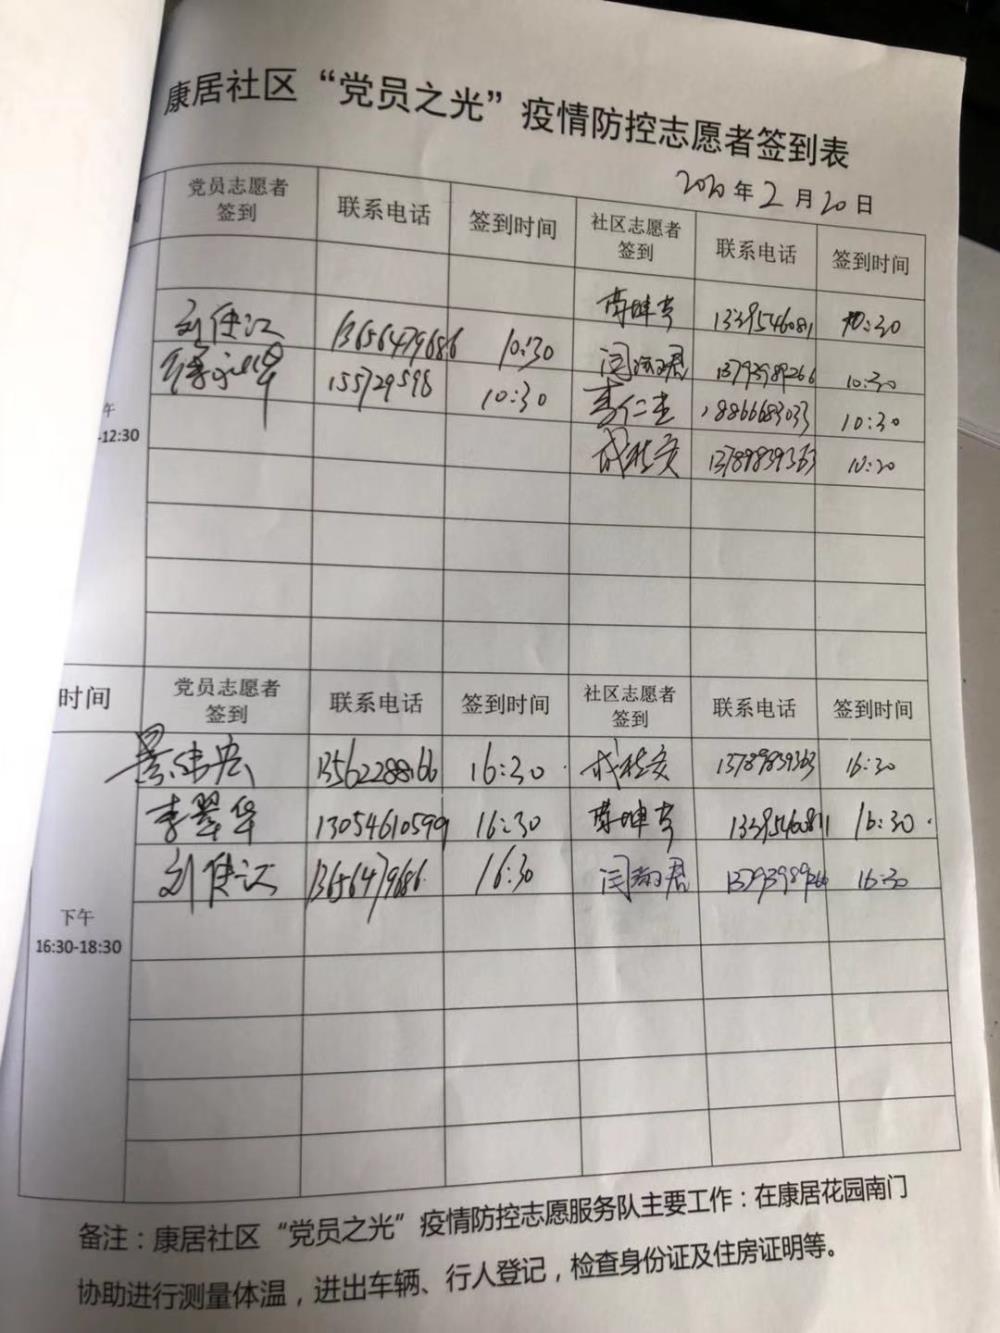 康居社区“党员之光”疫情防控志愿者签到表
2020年2月20日
党员志愿者签到 联系电话 签到时间 社区志愿者签到 联系电话 签到时间
10:30
刘使江 13656479686 10:30 13793989266 10:30
155729598 10:30 李仁杰 18866683033 10:30
午
-12:30
成桂英 13789839363
时间 党员志愿者签到 联系电话 签到时间 社区志愿者签到 联系电话 签到时间
景伟宏 13562288166 16:30 成桂英 13789839363 16:30
李翠华 13054610599 16:30 16:30
刘使江 13656479686 16:30 13793989266 16:30
下午
16:30-18:30
备注：康居社区“党员之光”疫情防控志愿服务队主要工作：在康居花园南门
协助进行测量体温，进出车辆、行人登记，检查身份证及住房证明等。